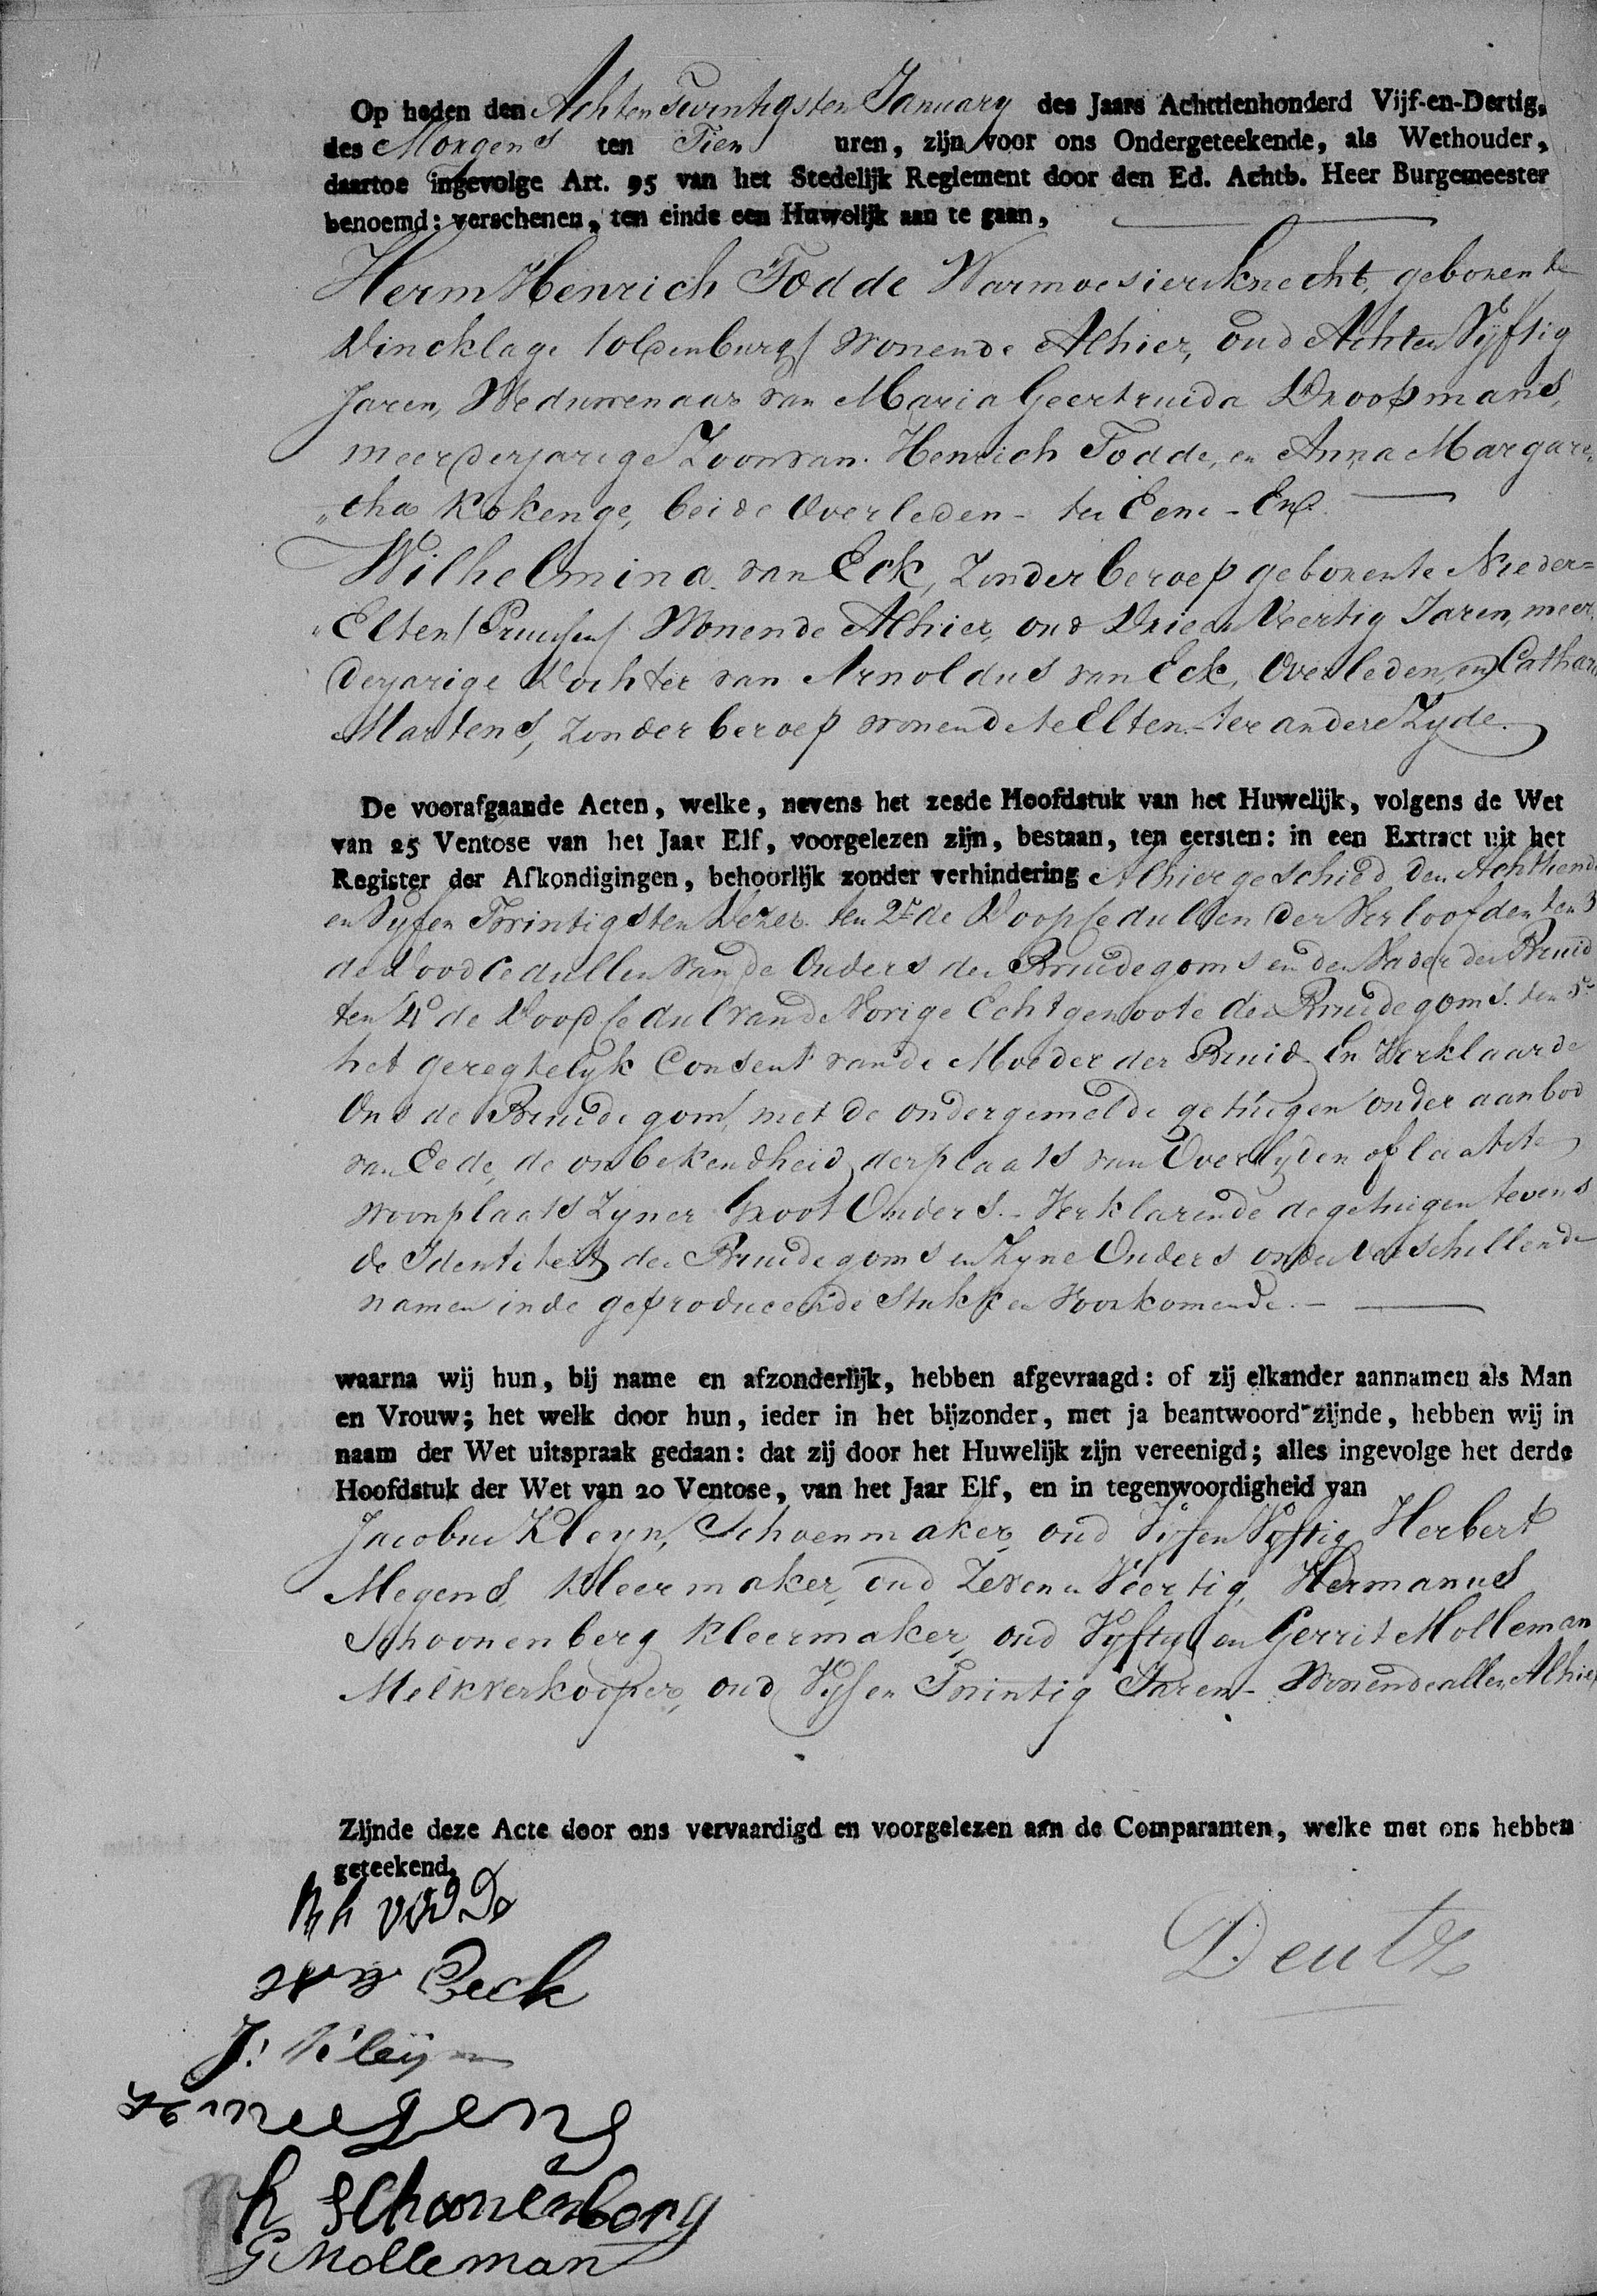 Op heden den Achten Twintigsten January des Jaars Achttienhonderd Vijf-en-Dertig,
des Morgens ten Tien uren, zijn voor ons Ondergeteekende, als Wethouder,
daartoe ingevolge Art. 95 van het Stedelijk Reglement door den Ed. Achtb. Heer Burgemeester
benoemd: verschenen, ten einde een Huwelijk aan te gaan,
Herm Henrich Todde Warmoesiersknecht, geboren te
Vincklage /oldenburg/ wonende Alhier, oud Achten Vyftig
Jaren, Weduwenaar van Maria Geertruida Droopmans,
meerderjarige Zoon van Henrich Todde, en Anna Margare„
„tha Kokenge, beide Overleden - ter Eene - En
Wilhelmina van Eck, Zonder beroep geboren te Nieder=
Elten /Pruissen/ Wonende Alhier, oud Drieen Veertig Jaren, meer„
derjarige Dochter van Arnoldus van Eck, Overleden, en Cathar
Martens, Zonder beroep wonende te Elten - ter andere Zyde.
De voorafgaande Acten, welke, nevens het zesde Hoofdstuk van het Huwelijk, volgens de Wet
van 25 Ventose van het Jaar Elf, voorgelezen zijn, bestaan, ten eersten: in een Extract uit het
Register der Afkondigingen, behoorlijk zonder verhindering Alhier geschied den Achttiende
en Vyfen Twintigsten Dezer. ten 2e de Doopcedullen der Verloofden ten 3
de Doodcedullen van de Ouders des Bruidegoms en den Vader der Bruid
ten 4e de Doodcedul van de Vorige Echtgenoote des Bruidegoms. ten 5e
het geregtelyk Consent van de Moeder der Bruid En Verklaarde
Ons de Bruidegom, met de ondergemelde getuigen onder aanbod
van Eede, de onbekendheid der plaats van Overlyden of laatste
woonplaats Zyner Groot Ouders. - Verklarende de getuigen tevens
de Identiteit des Bruidegoms en Zyne Ouders onder verschillende
namen in de geproduceerde Stukken Voorkomende. -
waarna wij hun, bij name en afzonderlijk, hebben afgevraagd: of zij elkander aannamen als Man
en Vrouw; het welk door hun, ieder in het bijzonder, met ja beantwoord zijnde, hebben wij in
naam der Wet uitspraak gedaan: dat zij door het Huwelijk zijn vereenigd; alles ingevolge het derde
Hoofdstuk der Wet van 20 Ventose, van het Jaar Elf, en in tegenwoordigheid van
Jacobus Kleyn, Schoenmaker, oud Vyfen Vyftig, Herbert
Megens, Kleermaker, oud Zeven en Veertig, Hermanus
Schoonenberg Kleermaker, oud Vyftig en Gerrit Molleman
Melkverkooper, oud Vyf en Twintig Jaren - Wonende allen Alhier
Zijnde deze Acte door ons vervaardigd en voorgelezen aan de Comparanten, welke met ons hebben
geteekend.
Deutz
Eeck
J: Kleijn
megens
h Schoonenberg
G Molleman